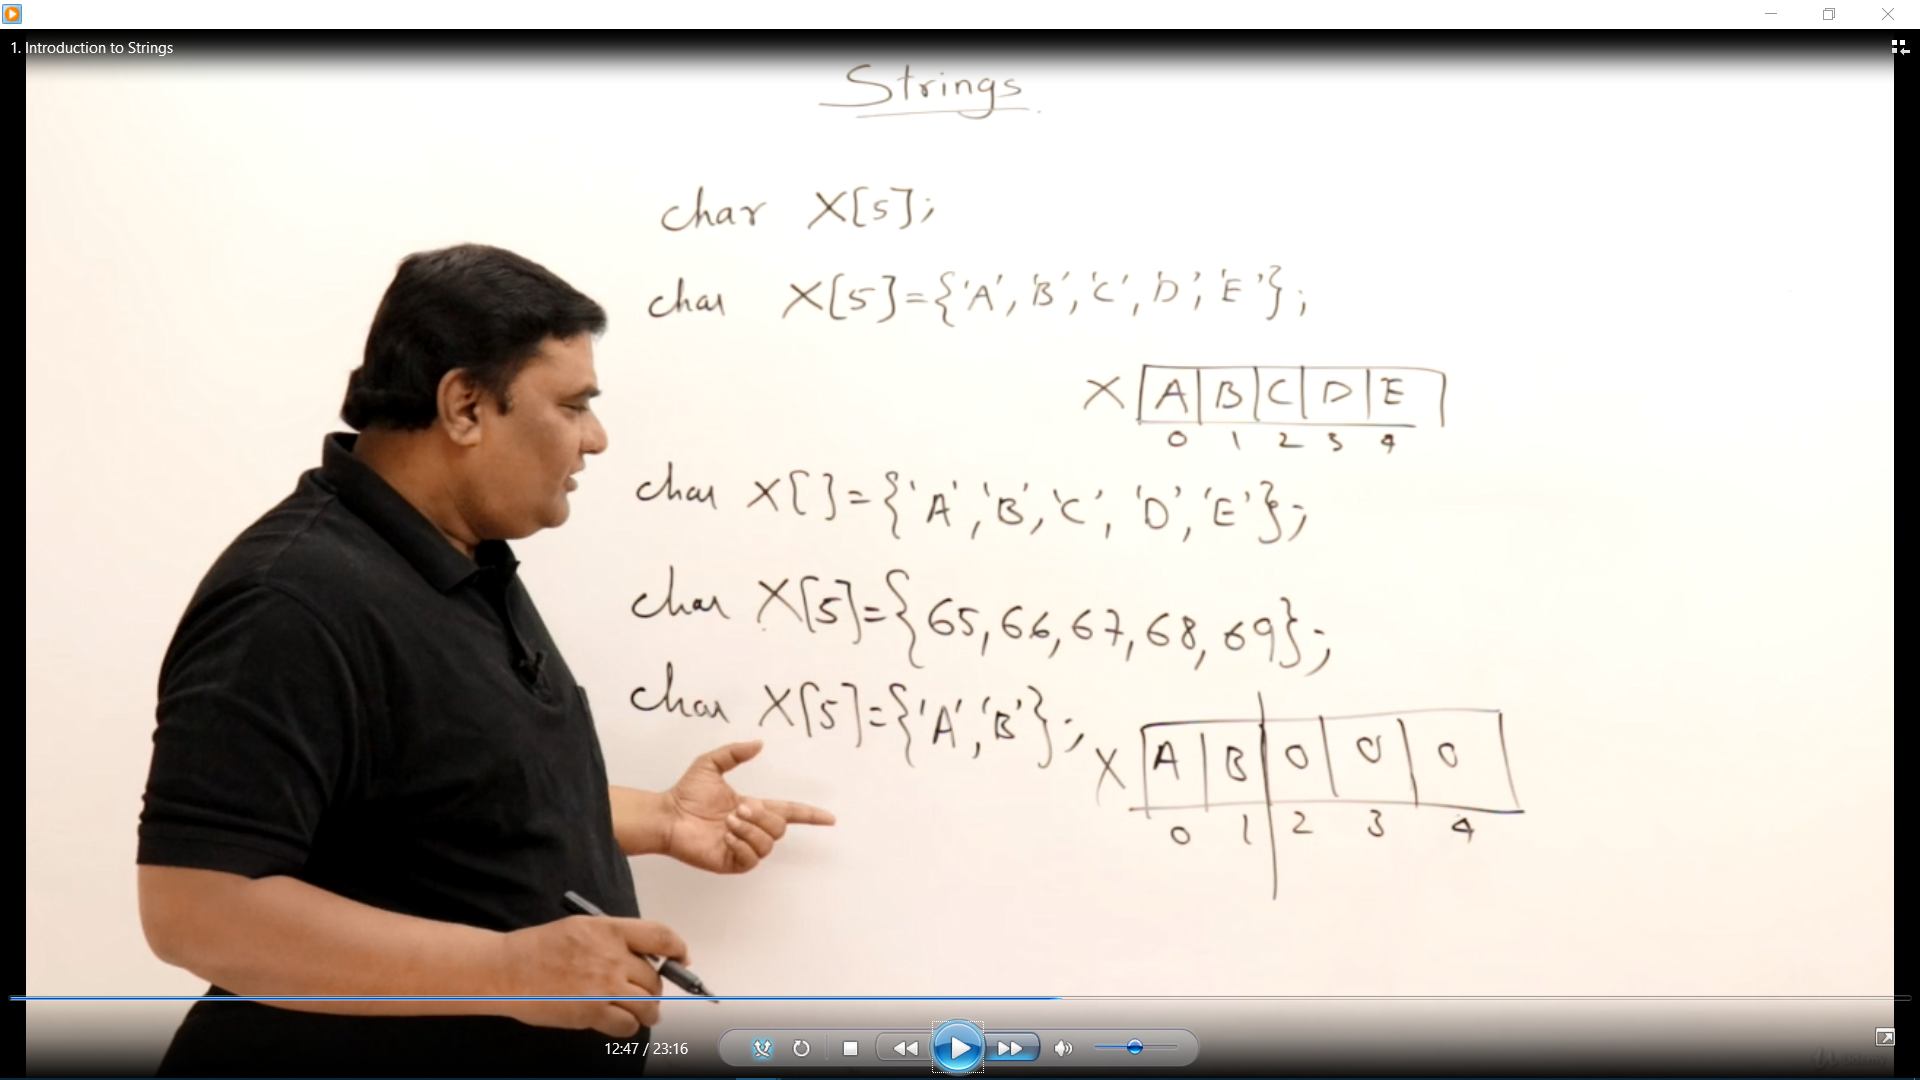 1. Introduction to Strings
Strings
char X[5];
char X[5]={'A','B','C','D','E'};
X A B C D E
0 1 2 3 4
char X[]={'A','B','C','D','E'};
char X[5]={65,66,67,68,69};
char X[5]={'A','B'};
X A B 0 0 0
0 1 2 3 4
12:47 / 23:16